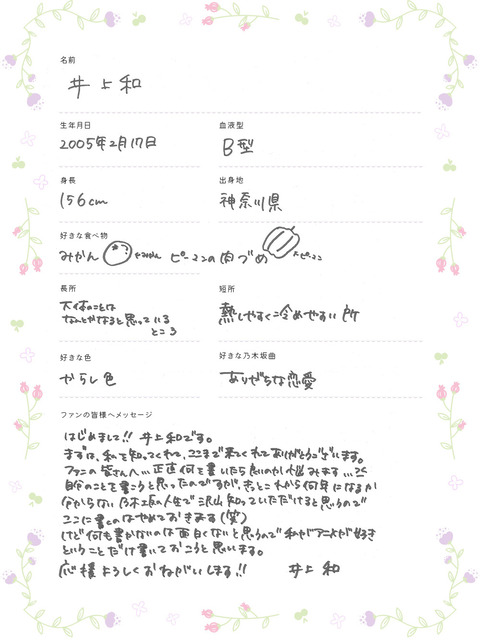 名前
井上和
生年月日
血液型
2005年2月17日
B型
身長
出身地
156cm
神奈川県
好きな食べ物
みかん ←みかん ピーマンの肉づめ ←ピーマン
長所
短所
大体のことは
なんとかなると思っている
ところ
熱しやすく冷めやすい所
好きな色
好きな乃木坂曲
からし色
ありがちな恋愛
ファンの皆様へメッセージ
はじめまして!! 井上和です。
まずは、私を知ってくれて、ここまで来てくれてありがとうございます。
ファンの皆さんへ…正直何を書いたら良いのか悩みます…
自分のことを書こうと思ったのですが、きっとこれから何年になるか
分からない乃木坂人生で沢山知っていただけると思うので
ここに書くのはやめておきます(笑)
けど何も書かないのは面白くないと思うので私がアニメが好き
ということだけ書いておこうと思います。
応援よろしくおねがいします!! 井上 和